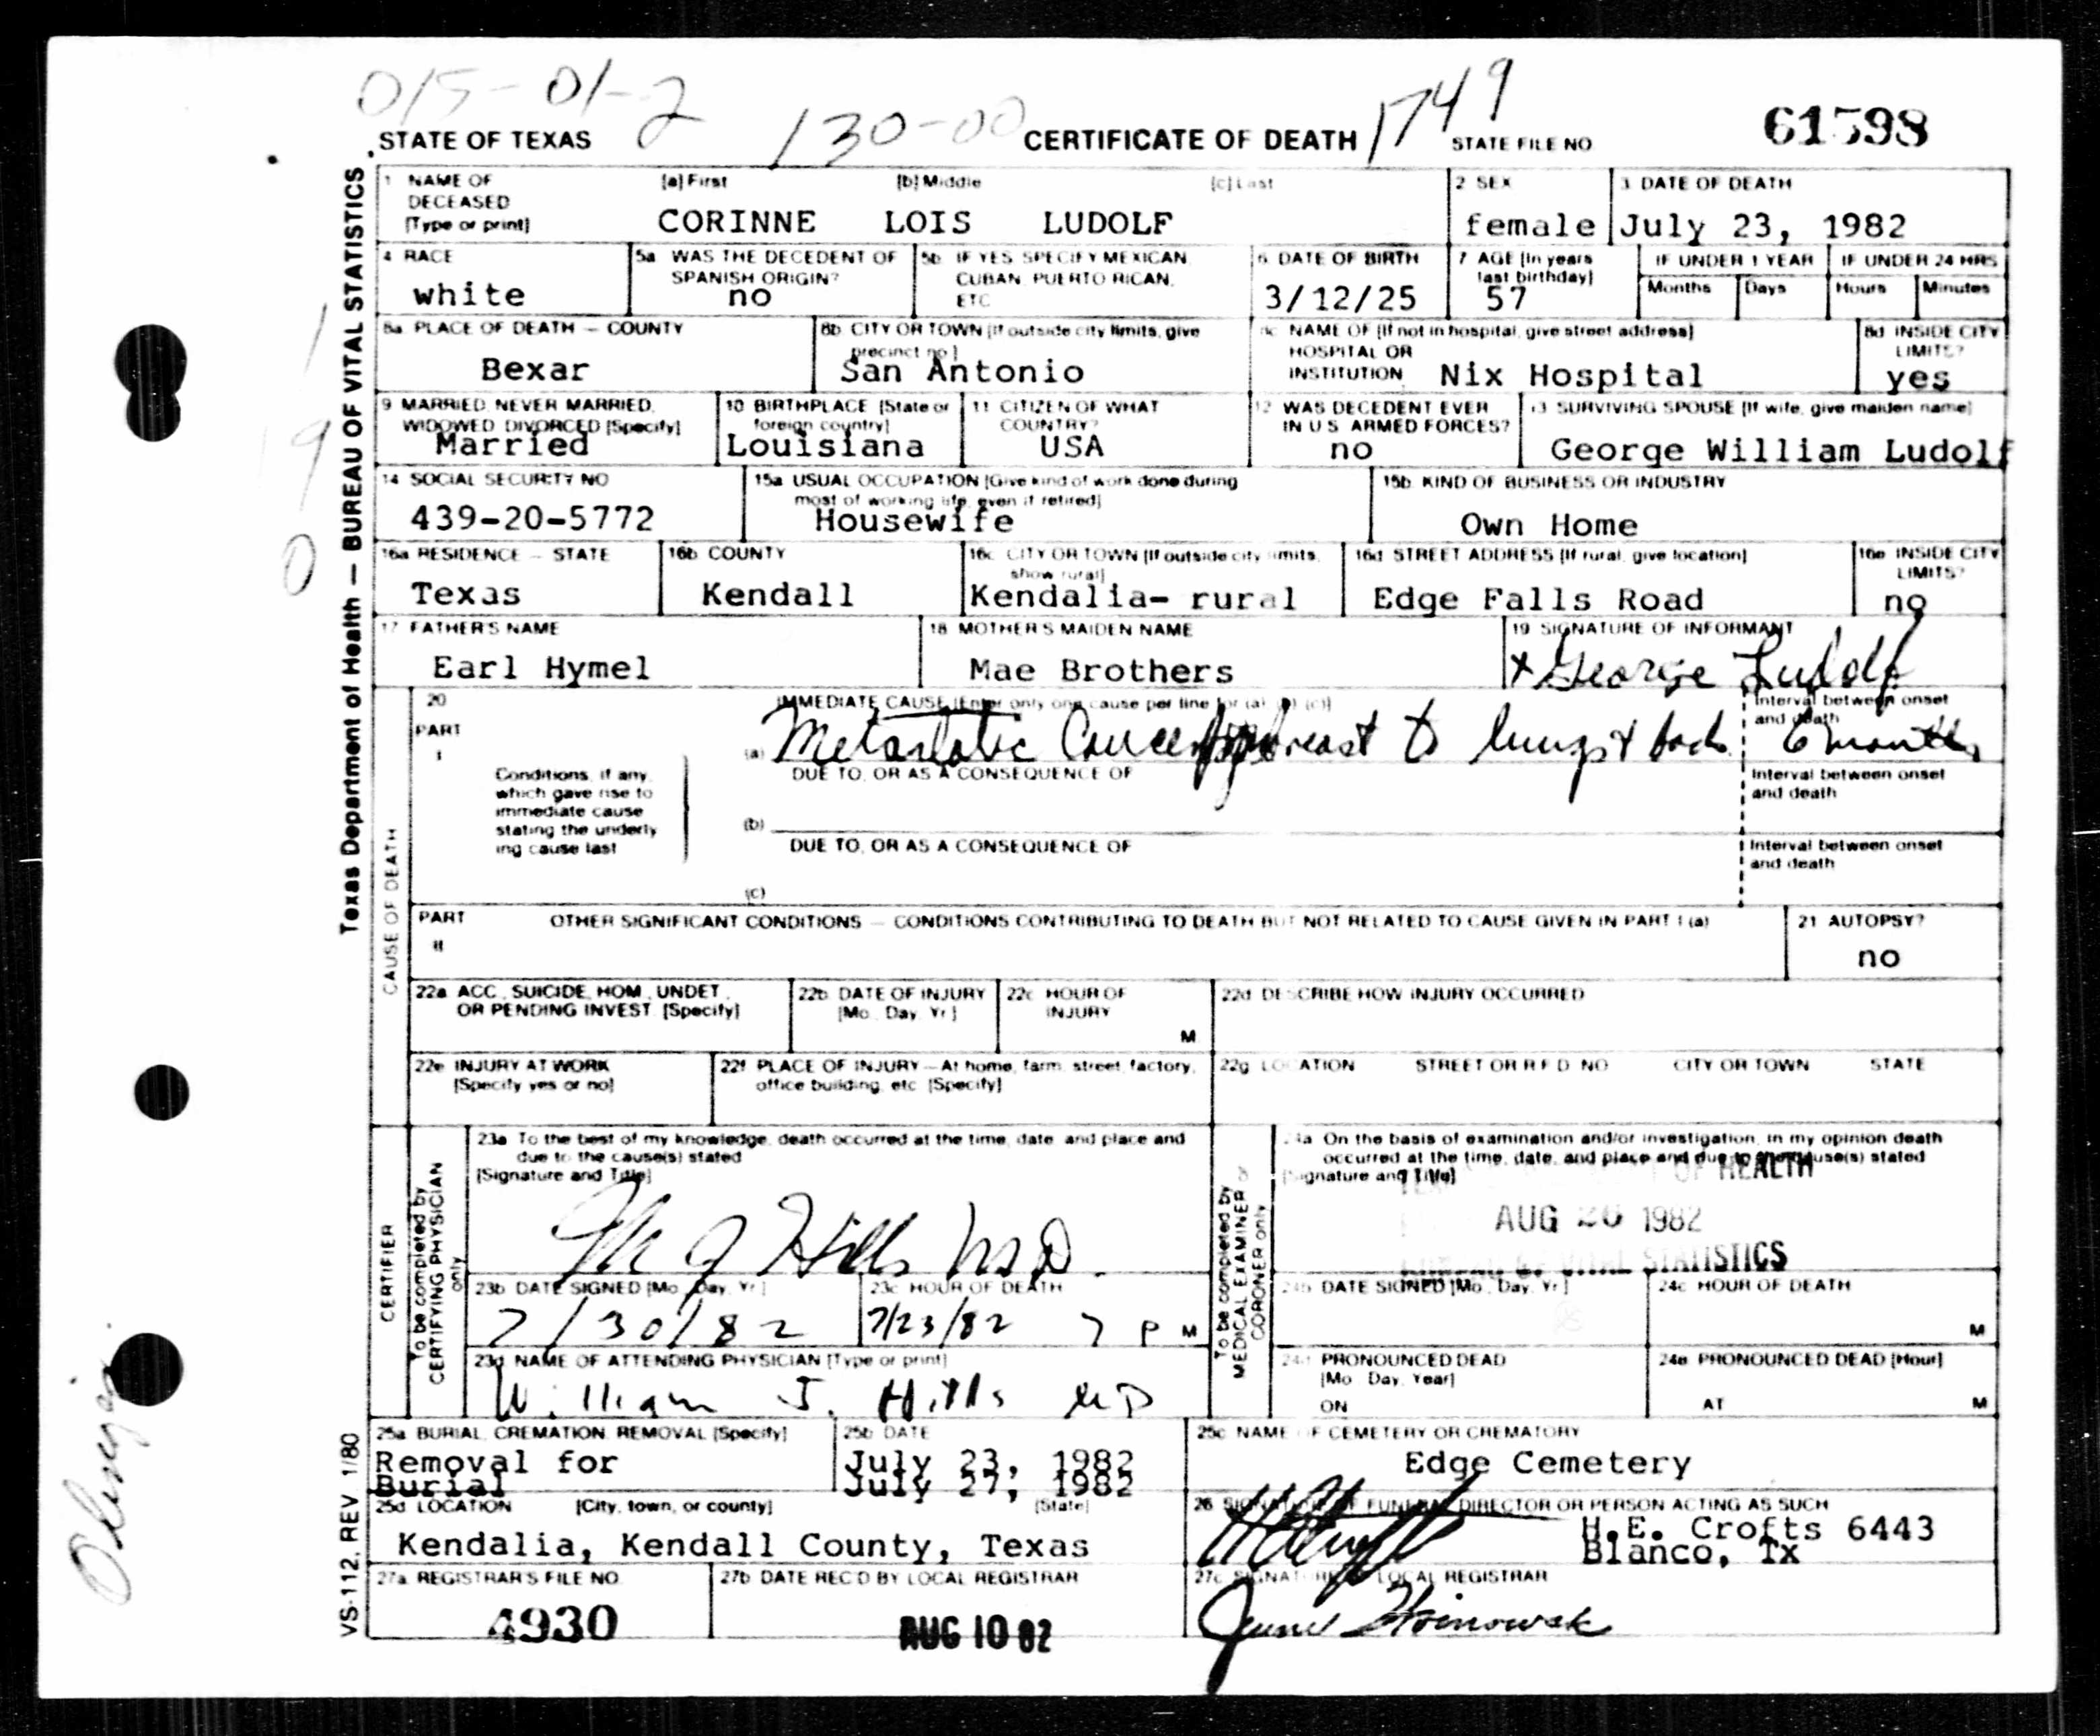 015-01-2
130-00
1749
61598
STATE OF TEXAS CERTIFICATE OF DEATH STATE FILE NO
Texas Department of Health — BUREAU OF VITAL STATISTICS
1 NAME OF DECEASED [Type or print] [a] First [b] Middle [c] Last
CORINNE LOIS LUDOLF
2 SEX
female
3 DATE OF DEATH
July 23, 1982
4 RACE
white
5a WAS THE DECEDENT OF SPANISH ORIGIN?
no
5b IF YES SPECIFY MEXICAN, CUBAN, PUERTO RICAN, ETC
6 DATE OF BIRTH
3/12/25
7 AGE [In years last birthday]
57
IF UNDER 1 YEAR
Months Days
IF UNDER 24 HRS
Hours Minutes
8a PLACE OF DEATH — COUNTY
Bexar
8b CITY OR TOWN [If outside city limits, give precinct no]
San Antonio
8c NAME OF [If not in hospital, give street address] HOSPITAL OR INSTITUTION
Nix Hospital
8d INSIDE CITY LIMITS?
yes
9 MARRIED, NEVER MARRIED, WIDOWED DIVORCED [Specify]
Married
10 BIRTHPLACE [State or foreign country]
Louisiana
11 CITIZEN OF WHAT COUNTRY?
USA
12 WAS DECEDENT EVER IN U.S ARMED FORCES?
no
13 SURVIVING SPOUSE [If wife, give maiden name]
George William Ludolf
14 SOCIAL SECURITY NO
439-20-5772
15a USUAL OCCUPATION [Give kind of work done during most of working life, even if retired]
Housewife
15b KIND OF BUSINESS OR INDUSTRY
Own Home
16a RESIDENCE — STATE
Texas
16b COUNTY
Kendall
16c CITY OR TOWN [If outside city limits, show rural]
Kendalia- rural
16d STREET ADDRESS [If rural, give location]
Edge Falls Road
16e INSIDE CITY LIMITS?
no
17 FATHER'S NAME
Earl Hymel
18 MOTHER'S MAIDEN NAME
Mae Brothers
19 SIGNATURE OF INFORMANT
x George Ludolf
CAUSE OF DEATH
20 PART I
IMMEDIATE CAUSE [Enter only one cause per line for (a) (b) (c)]
(a) Metastatic Cancer breast to lungs &
Interval between onset and death
6 months
Conditions, if any, which gave rise to immediate cause stating the underlying cause last
DUE TO, OR AS A CONSEQUENCE OF
(b)
Interval between onset and death
DUE TO, OR AS A CONSEQUENCE OF
(c)
Interval between onset and death
PART II OTHER SIGNIFICANT CONDITIONS — CONDITIONS CONTRIBUTING TO DEATH BUT NOT RELATED TO CAUSE GIVEN IN PART I (a)
21 AUTOPSY?
no
22a ACC, SUICIDE, HOM, UNDET, OR PENDING INVEST [Specify]
22b DATE OF INJURY [Mo. Day, Yr]
22c HOUR OF INJURY
M
22d DESCRIBE HOW INJURY OCCURRED
22e INJURY AT WORK [Specify yes or no]
22f PLACE OF INJURY — At home, farm, street, factory, office building, etc [Specify]
22g LOCATION STREET OR R F D NO CITY OR TOWN STATE
CERTIFIER
To be completed by CERTIFYING PHYSICIAN only
23a To the best of my knowledge, death occurred at the time, date, and place and due to the cause(s) stated
[Signature and Title]
Hills M.D.
23b DATE SIGNED [Mo. Day, Yr]
7/30/82
23c HOUR OF DEATH
7/23/82 7 P M
23d NAME OF ATTENDING PHYSICIAN [Type or print]
William J. Hills MD
To be completed by MEDICAL EXAMINER CORONER only
24a On the basis of examination and/or investigation, in my opinion death occurred at the time, date, and place and due to the cause(s) stated
[Signature and Title]
OF HEALTH
AUG 20 1982
BUREAU OF VITAL STATISTICS
24b DATE SIGNED [Mo. Day, Yr]
24c HOUR OF DEATH
M
24d PRONOUNCED DEAD [Mo. Day, Year]
ON
24e PRONOUNCED DEAD [Hour]
AT M
25a BURIAL, CREMATION, REMOVAL [Specify]
Removal for
Burial
25b DATE
July 23, 1982
July 27, 1982
25c NAME OF CEMETERY OR CREMATORY
Edge Cemetery
25d LOCATION [City, town, or county] [State]
Kendalia, Kendall County, Texas
26 SIGNATURE OF FUNERAL DIRECTOR OR PERSON ACTING AS SUCH
H.E. Crofts 6443
Blanco, Tx
27a REGISTRAR'S FILE NO
4930
27b DATE REC'D BY LOCAL REGISTRAR
AUG 10 82
27c SIGNATURE OF LOCAL REGISTRAR
VS-112, REV. 1/80